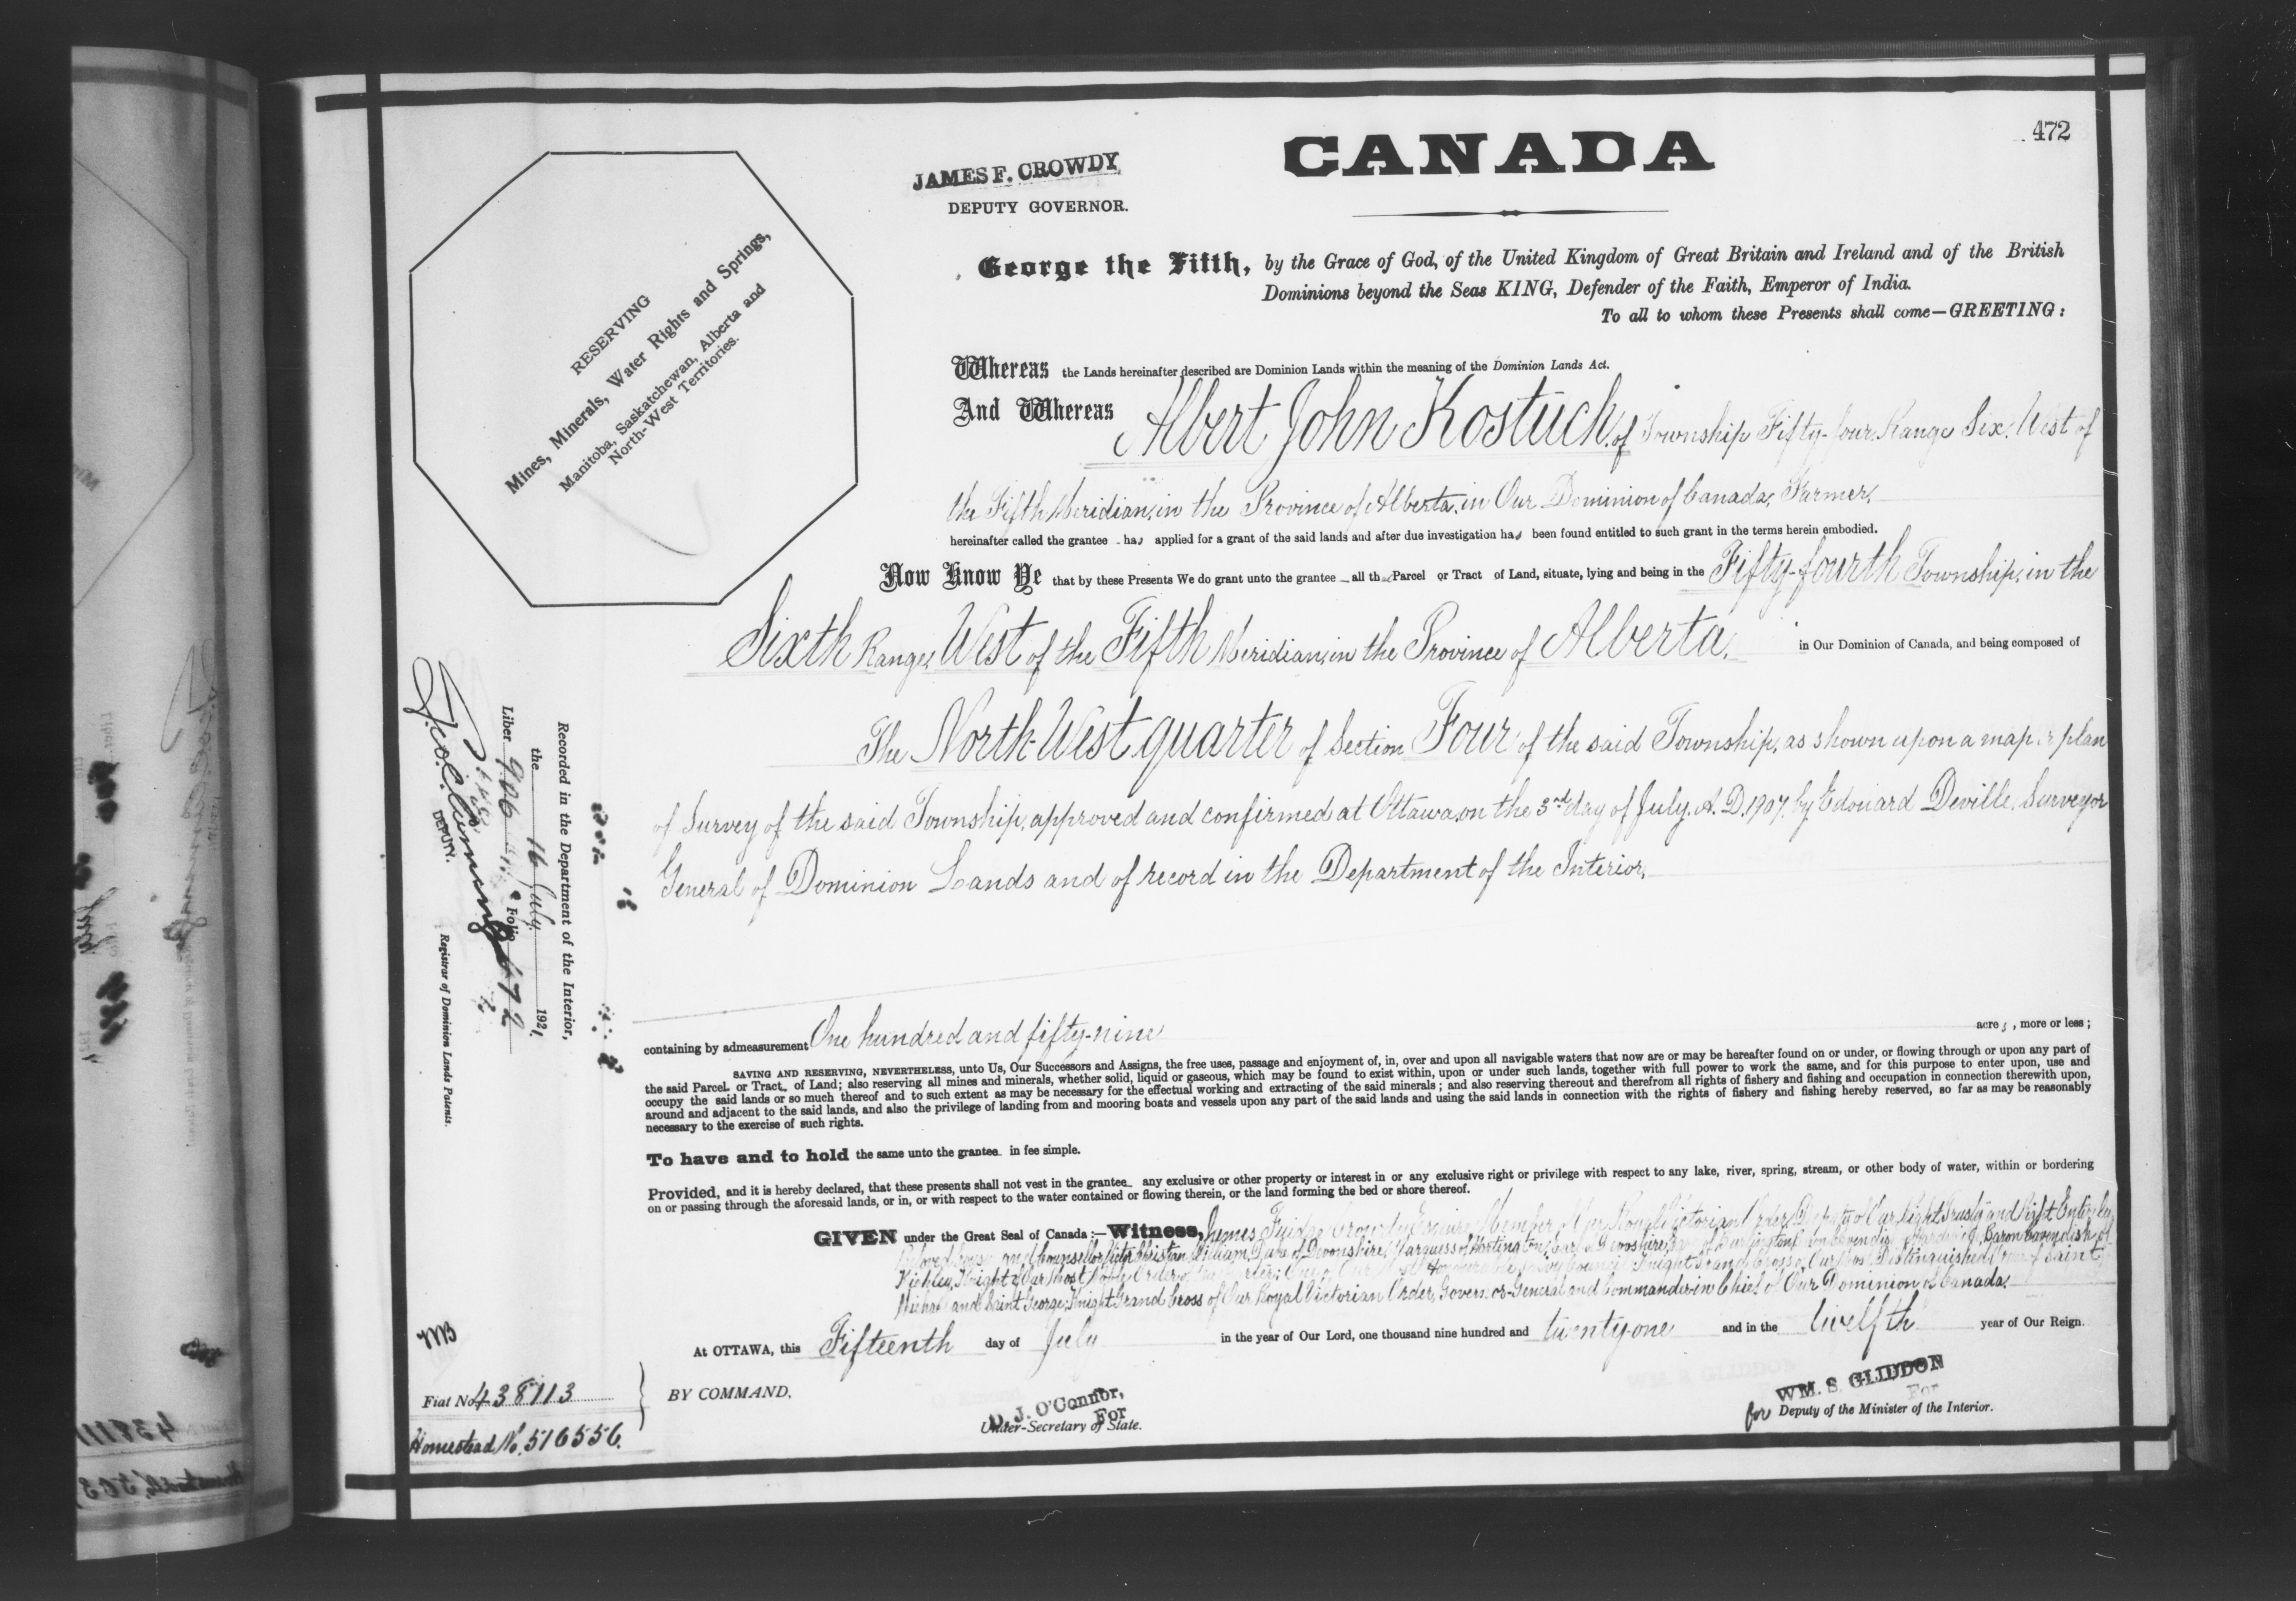 472
CANADA
JAMES F. CROWDY
DEPUTY GOVERNOR.
RESERVING
Mines, Minerals, Water Rights and Springs,
Manitoba, Saskatchewan, Alberta and
North-West Territories.
George the Fifth, by the Grace of God, of the United Kingdom of Great Britain and Ireland and of the British
Dominions beyond the Seas KING, Defender of the Faith, Emperor of India.
To all to whom these Presents shall come—GREETING:
Whereas the Lands hereinafter described are Dominion Lands within the meaning of the Dominion Lands Act.
And Whereas Albert John Kostuch, of Township Fifty-four, Range Six, West of
the Fifth Meridian, in the Province of Alberta, in Our Dominion of Canada, Farmer,
hereinafter called the grantee has applied for a grant of the said lands and after due investigation has been found entitled to such grant in the terms herein embodied.
Now Know Ye that by these Presents We do grant unto the grantee all that Parcel or Tract of Land, situate, lying and being in the Fifty-fourth Township, in the
Sixth Range, West of the Fifth Meridian, in the Province of Alberta, in Our Dominion of Canada, and being composed of
The North-West quarter of Section Four of the said Township, as shown upon a map or plan
of Survey of the said Township, approved and confirmed at Ottawa, on the 3rd day of July, A. D. 1907, by Edouard Deville, Surveyor
General of Dominion Lands and of record in the Department of the Interior,
containing by admeasurement One hundred and fifty-nine acres, more or less;
SAVING AND RESERVING, NEVERTHELESS, unto Us, Our Successors and Assigns, the free uses, passage and enjoyment of, in, over and upon all navigable waters that now are or may be hereafter found on or under, or flowing through or upon any part of
the said Parcel or Tract of Land; also reserving all mines and minerals, whether solid, liquid or gaseous, which may be found to exist within, upon or under such lands, together with full power to work the same, and for this purpose to enter upon, use and
occupy the said lands or so much thereof and to such extent as may be necessary for the effectual working and extracting of the said minerals; and also reserving thereout and therefrom all rights of fishery and fishing and occupation in connection therewith upon,
around and adjacent to the said lands, and also the privilege of landing from and mooring boats and vessels upon any part of the said lands and using the said lands in connection with the rights of fishery and fishing hereby reserved, so far as may be reasonably
necessary to the exercise of such rights.
To have and to hold the same unto the grantee in fee simple.
Provided, and it is hereby declared, that these presents shall not vest in the grantee any exclusive or other property or interest in or any exclusive right or privilege with respect to any lake, river, spring, stream, or other body of water, within or bordering
on or passing through the aforesaid lands, or in, or with respect to the water contained or flowing therein, or the land forming the bed or shore thereof.
GIVEN under the Great Seal of Canada:—Witness, James Crowdy Esquire, Member of Our Royal Victorian Order, Deputy of Our Right Trusty and Right Entirely
Beloved Cousin and Counsellor Victor Christian William, Duke of Devonshire, Marquess of Hartington, Earl of Devonshire, Baron Cavendish of
Keighley, Knight of Our Most Noble Order of the Garter; One of Our Most Honourable Privy Council; Knight Grand Cross of Our Most Distinguished Order of Saint
Michael and Saint George; Knight Grand Cross of Our Royal Victorian Order, Governor-General and Commander in Chief of Our Dominion of Canada.
At OTTAWA, this Fifteenth day of July in the year of Our Lord, one thousand nine hundred and twenty one and in the twelfth year of Our Reign.
BY COMMAND,
D. J. O'Connor,
For
Under-Secretary of State.
WM. S. GLIDDON
For
for Deputy of the Minister of the Interior.
Recorded in the Department of the Interior,
the 16 July 1921.
Liber 906 Folio 472
DEPUTY.
Registrar of Dominion Lands Patents.
Fiat No. 438113
Homestead No. 516556.